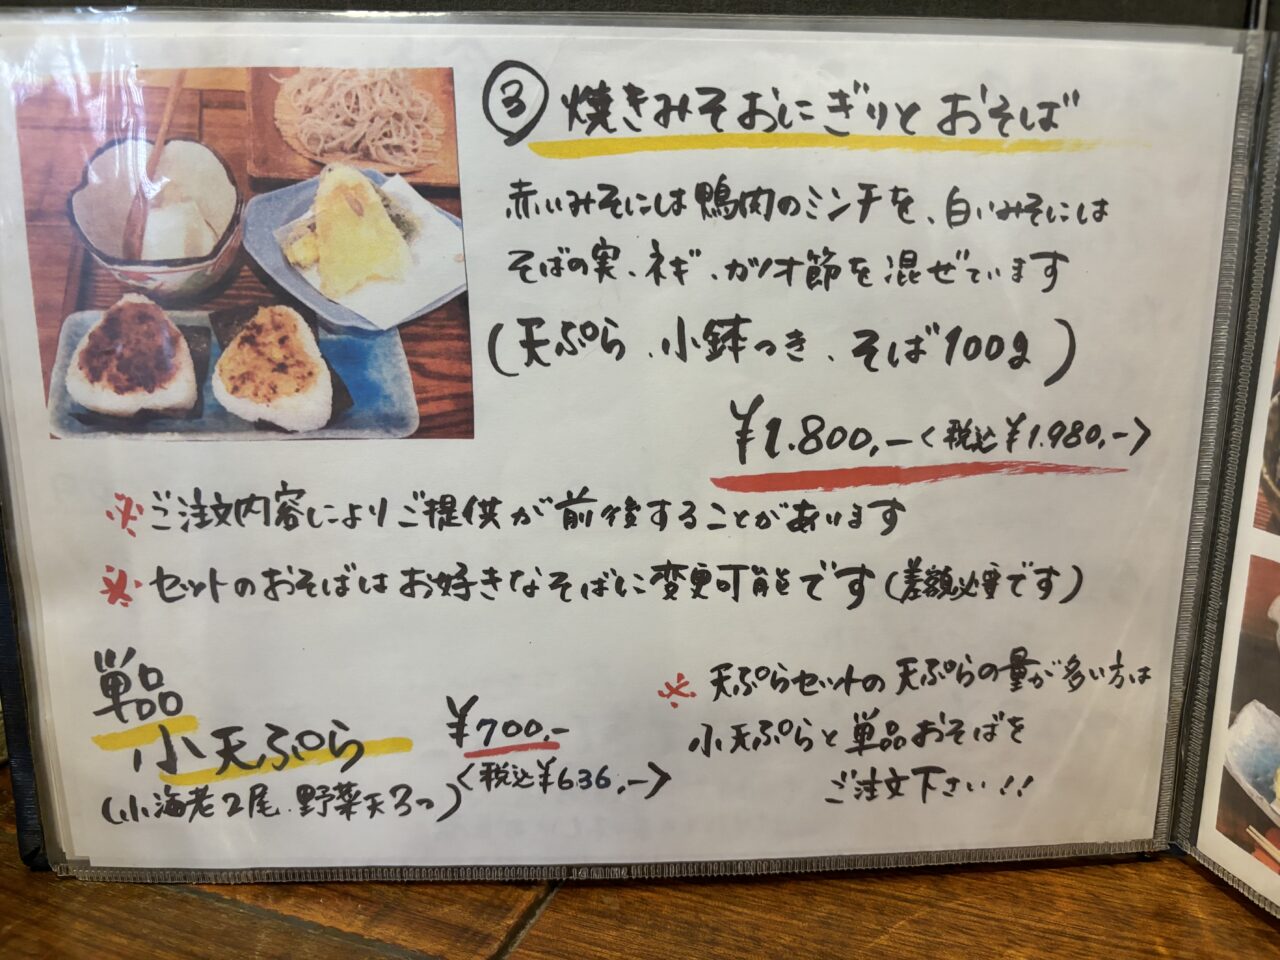 ③ 焼きみそおにぎりと おそば
赤いみそには鴨肉のミンチを、白いみそには
そばの実、ネギ、カツオ節を混ぜています
(天ぷら、小鉢つき、そば100g)
¥1.800,-<税込¥1.980,->
※ご注文内容によりご提供が前後することがあります
※セットのおそばはお好きなそばに変更可能です(差額必要です)
単品
小天ぷら ¥700,-
(小海老2尾、野菜天3つ) <税込¥636,->
※天ぷらセットの天ぷらの量が多い方は
小天ぷらと単品おそばを
ご注文下さい!!